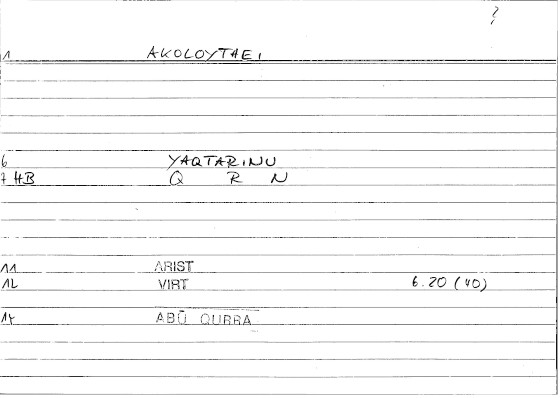 ?
1 AKOLOYTAEI
6 YAQTARINU
7 HB Q R N
11 ARIST
12 VIRT 6.20 (40)
14 ABŪ QURRA